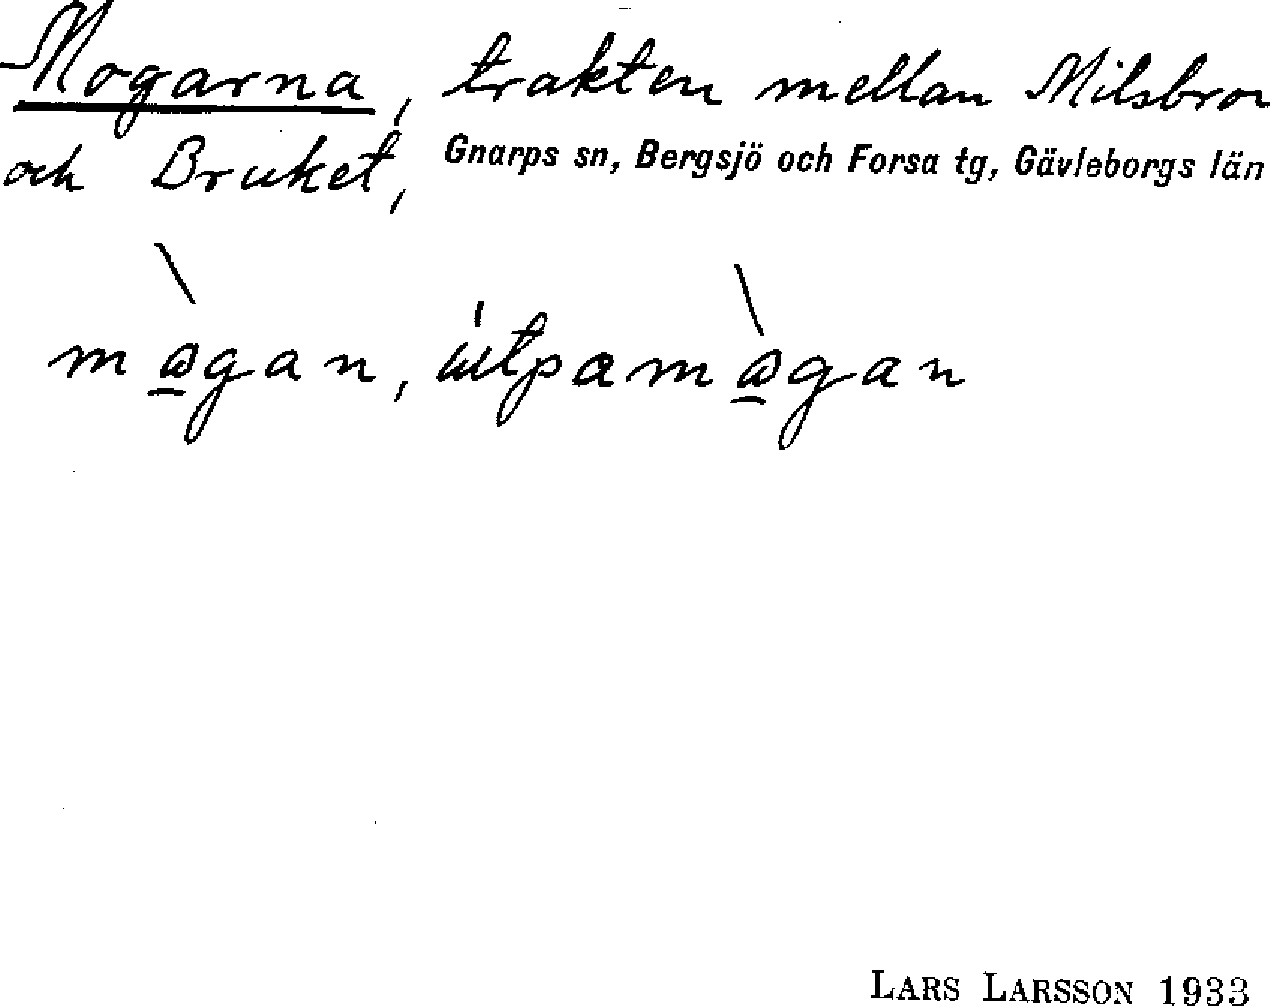 Mogarna, trakten mellan Milsbron
och Bruket, Gnarps sn, Bergsjö och Forsa tg, Gävleborgs län
LARS LARSSON 1933